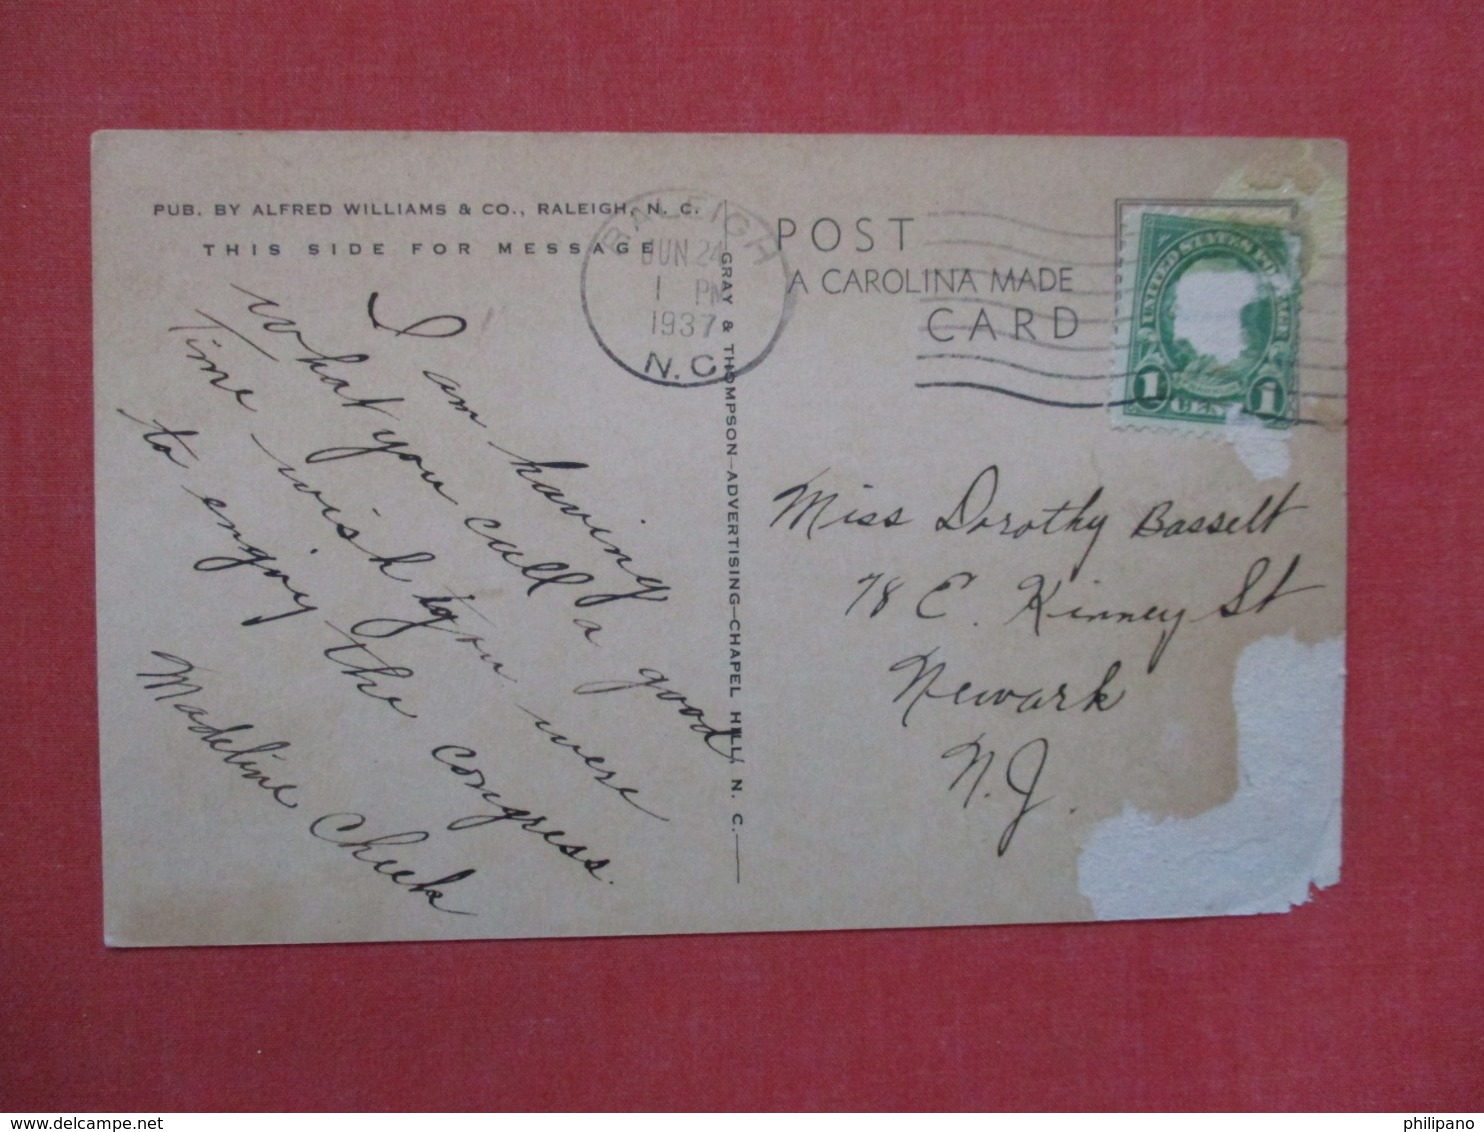 PUB. BY ALFRED WILLIAMS & CO., RALEIGH, N. C.
THIS SIDE FOR MESSAGE
I am having
what you call a good
Time wish you were
to enjoy the congress.
Madeline Cheek
GRAY & THOMPSON—ADVERTISING—CHAPEL HILL, N. C.
RALEIGH
JUN 24
1 PM
1937
N.C.
POST
A CAROLINA MADE
CARD
UNITED STATES
1 1
Miss Dorothy Bassett
78 E. Kinney St
Newark
N.J.
philipano